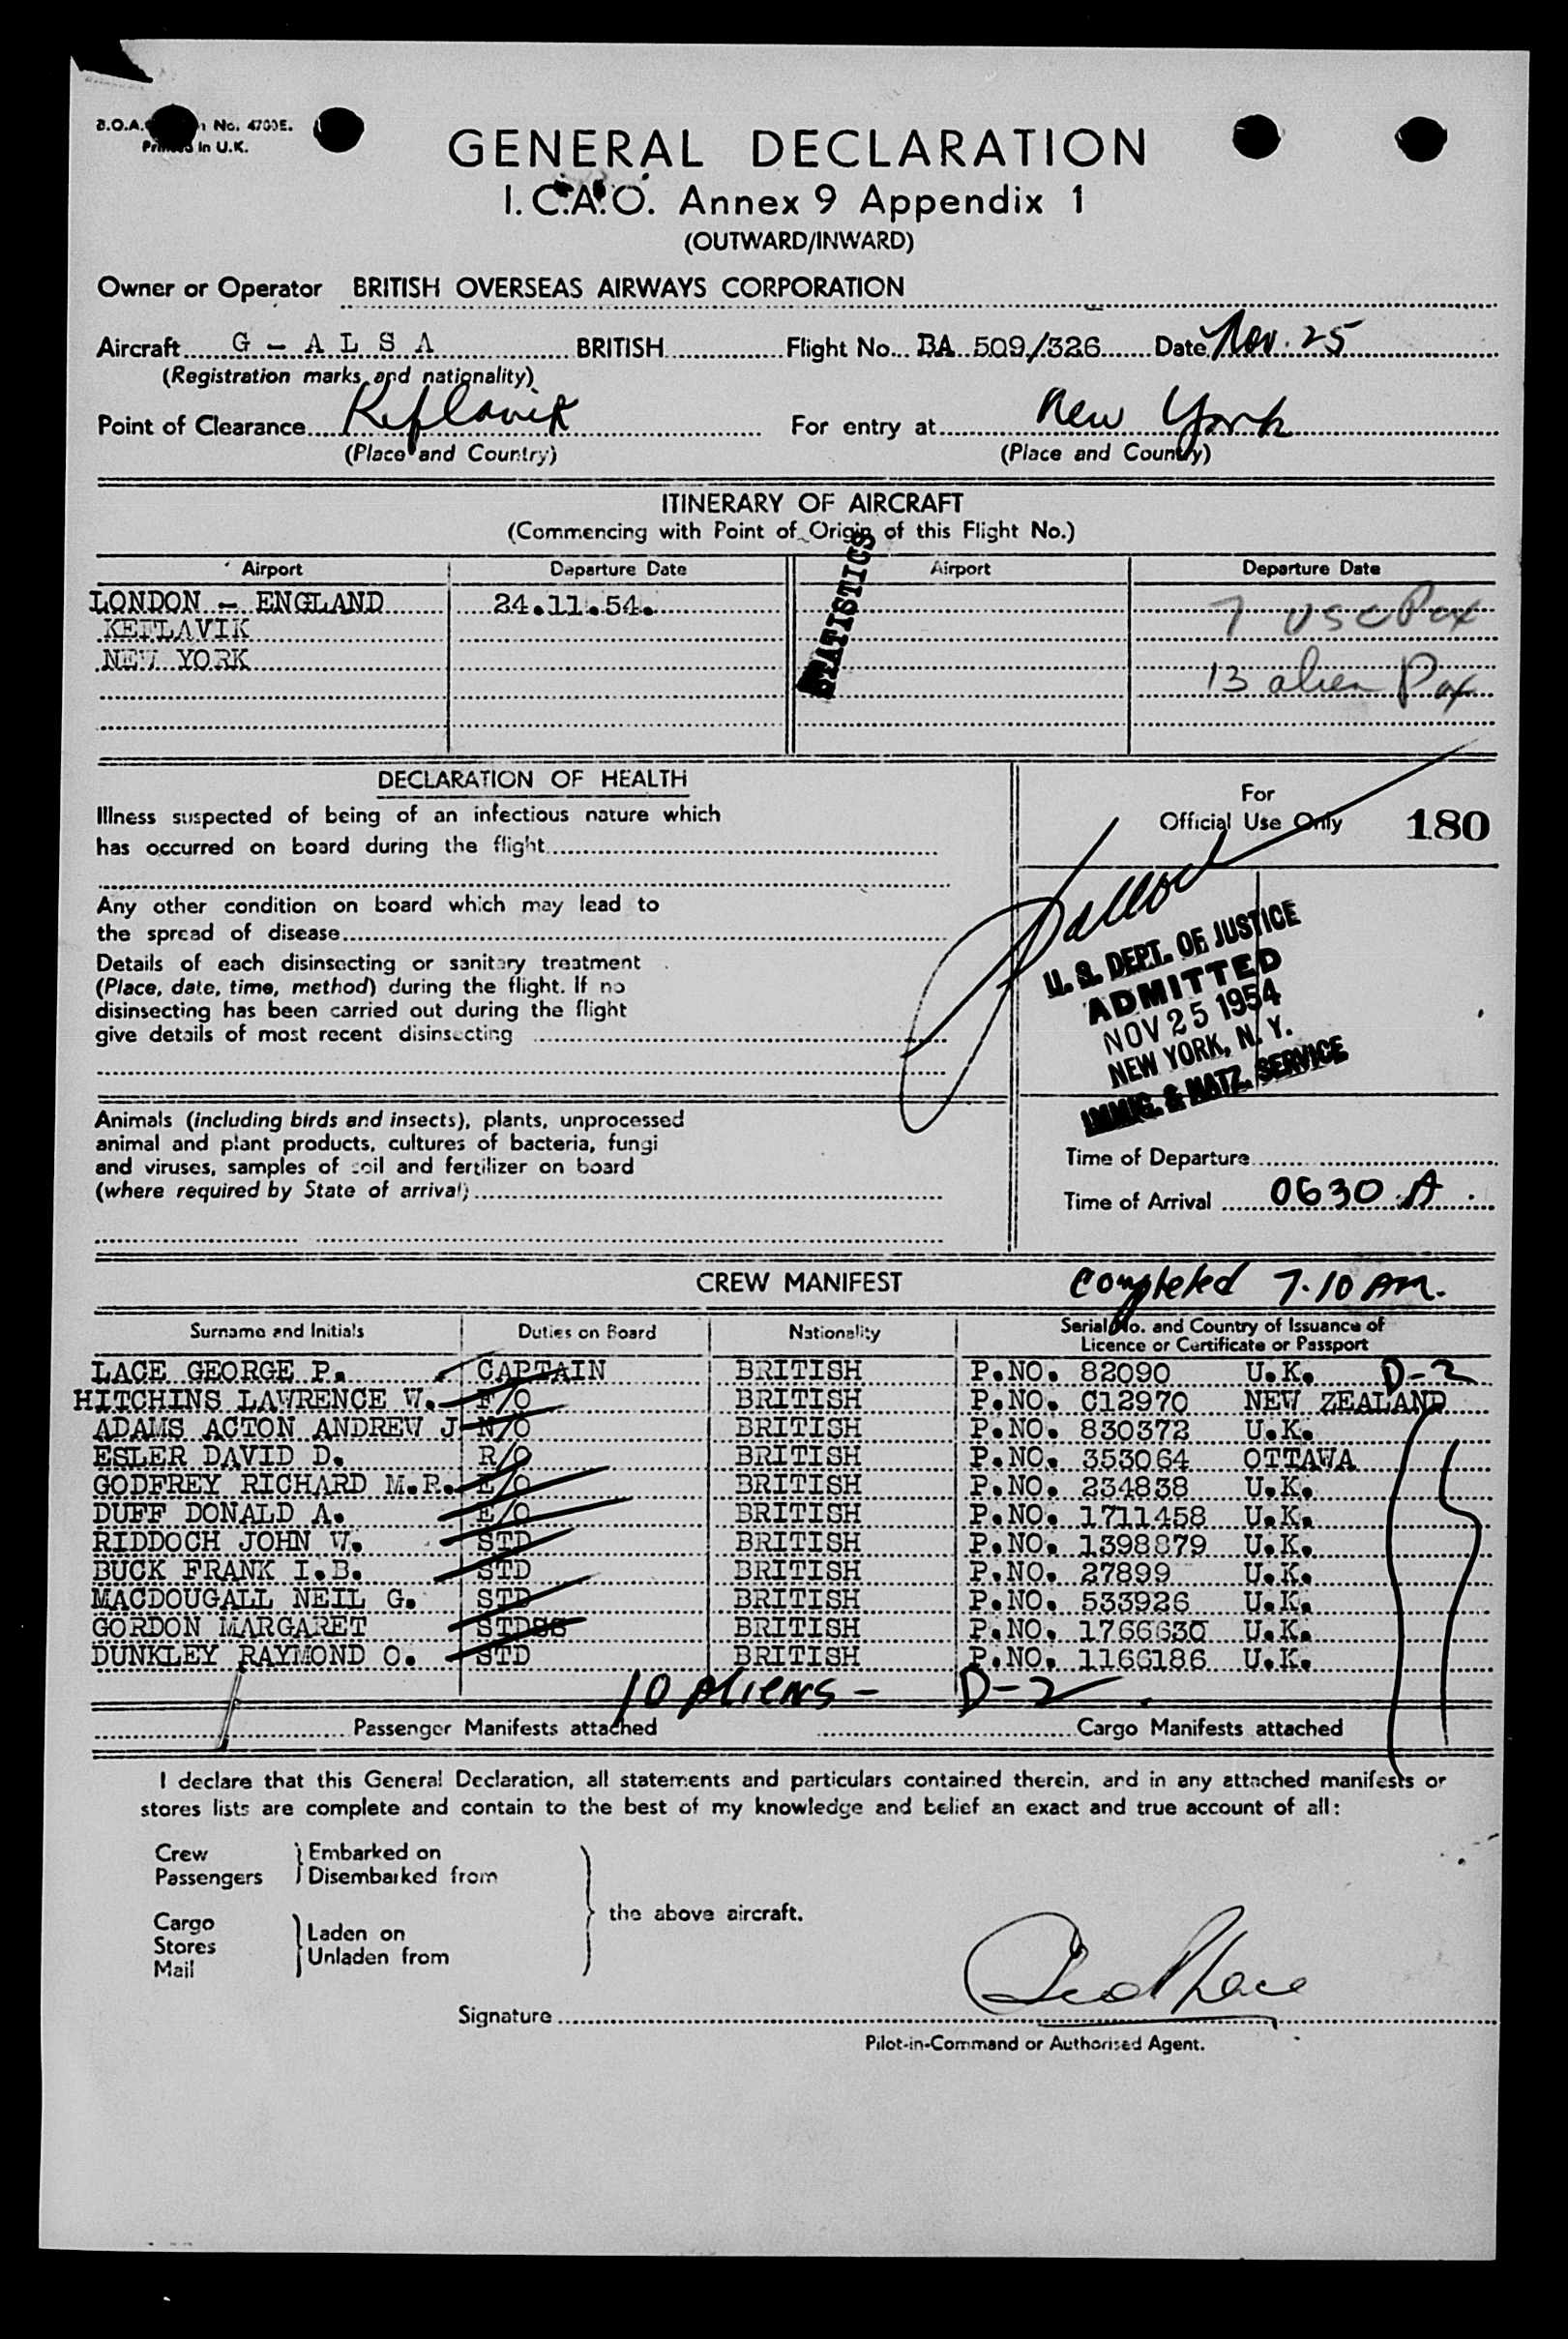 B.O.A. No. 4700E.
Printed in U.K.
GENERAL DECLARATION
I.C.A.O. Annex 9 Appendix 1
(OUTWARD/INWARD)
Owner or Operator BRITISH OVERSEAS AIRWAYS CORPORATION
Aircraft G - A L S A BRITISH Flight No. BA 509/326 Date Nov. 25
(Registration marks and nationality)
Point of Clearance Keflavik For entry at New York
(Place and Country) (Place and Country)
ITINERARY OF AIRCRAFT
(Commencing with Point of Origin of this Flight No.)
STATISTICS
Airport Departure Date Airport Departure Date
LONDON - ENGLAND 24.11.54. 7 USC Pax
KEFLAVIK
NEW YORK 13 alien Pax
DECLARATION OF HEALTH
Illness suspected of being of an infectious nature which
has occurred on board during the flight
Any other condition on board which may lead to
the spread of disease
Details of each disinsecting or sanitary treatment
(Place, date, time, method) during the flight. If no
disinsecting has been carried out during the flight
give details of most recent disinsecting
Animals (including birds and insects), plants, unprocessed
animal and plant products, cultures of bacteria, fungi
and viruses, samples of soil and fertilizer on board
(where required by State of arrival)
For
Official Use Only 180
U. S. DEPT. OF JUSTICE
ADMITTED
NOV 25 1954
NEW YORK, N. Y.
IMMIG. & NATZ. SERVICE
Time of Departure
Time of Arrival 0630 A
CREW MANIFEST completed 7.10 AM.
Surname and Initials Duties on Board Nationality Serial No. and Country of Issuance of
Licence or Certificate or Passport
LACE GEORGE P. CAPTAIN BRITISH P.NO. 82090 U.K. D-2
HITCHINS LAWRENCE W. F/O BRITISH P.NO. C12970 NEW ZEALAND
ADAMS ACTON ANDREW J N/O BRITISH P.NO. 830372 U.K.
ESLER DAVID D. R/O BRITISH P.NO. 353064 OTTAWA
GODFREY RICHARD M.R. E/O BRITISH P.NO. 234838 U.K.
DUFF DONALD A. E/O BRITISH P.NO. 1711458 U.K.
RIDDOCH JOHN W. STD BRITISH P.NO. 1398879 U.K.
BUCK FRANK I.B. STD BRITISH P.NO. 27899 U.K.
MACDOUGALL NEIL G. STD BRITISH P.NO. 533926 U.K.
GORDON MARGARET STDSS BRITISH P.NO. 1766630 U.K.
DUNKLEY RAYMOND O. STD BRITISH P.NO. 1166186 U.K.
10 Aliens - D-2
Passenger Manifests attached Cargo Manifests attached
I declare that this General Declaration, all statements and particulars contained therein, and in any attached manifests or
stores lists are complete and contain to the best of my knowledge and belief an exact and true account of all:
Crew Embarked on
Passengers Disembarked from
the above aircraft.
Cargo
Stores Laden on
Mail Unladen from
Signature Geo P Lace
Pilot-in-Command or Authorised Agent.